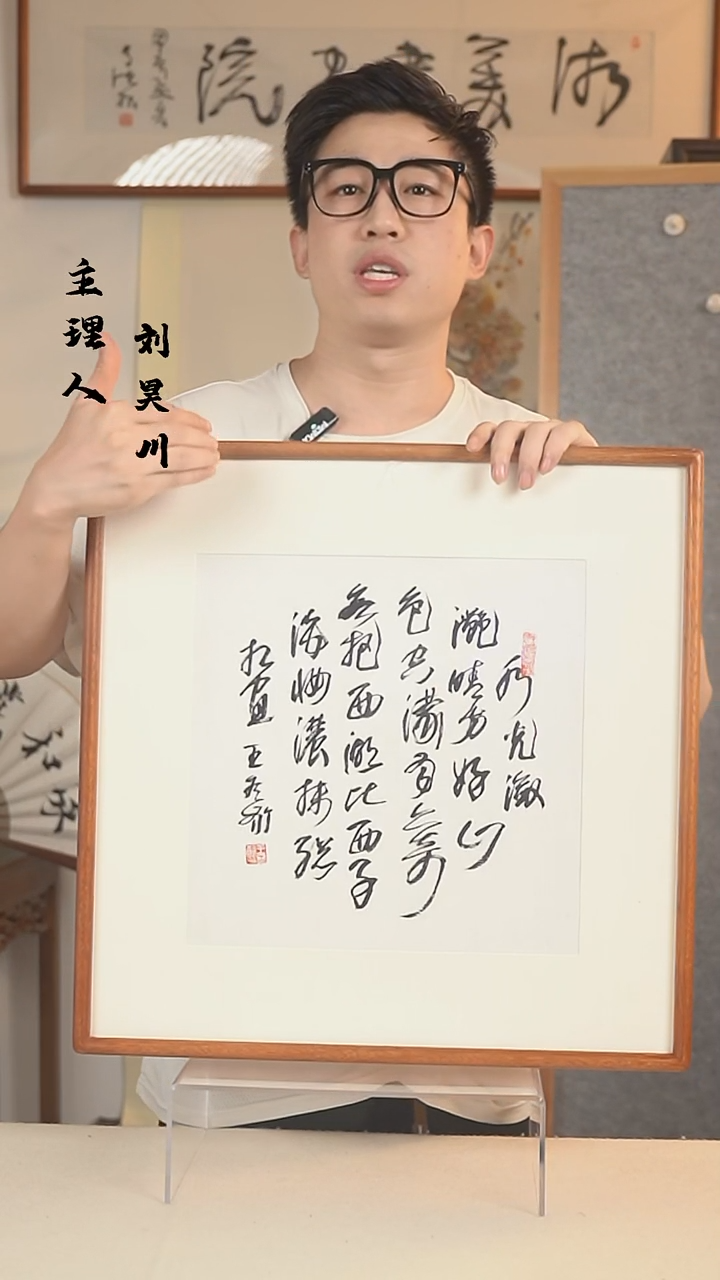 主理人
刘昊川
水光潋
灧晴方好山
色空濛雨亦奇
欲把西湖比西子
淡妝濃抹總
相宜 王冬龄
美
院
和